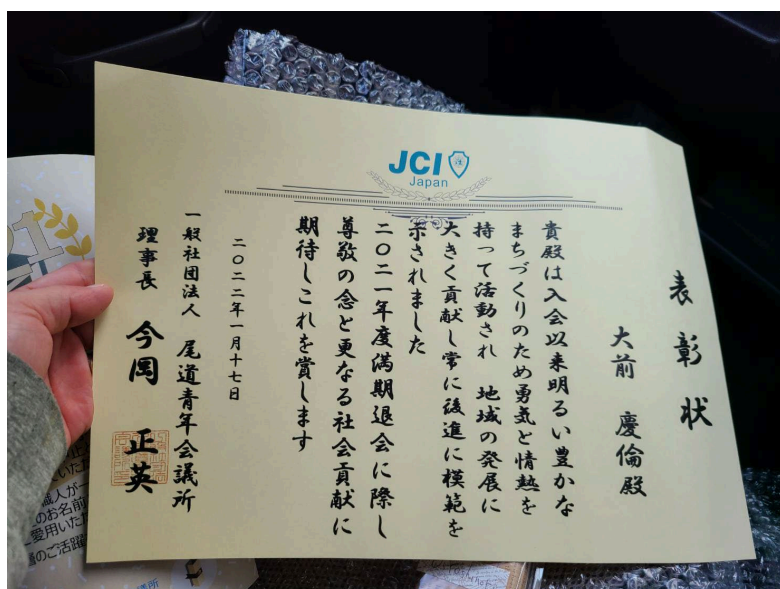 JCI
Japan
表彰状
大前 慶倫殿
貴殿は入会以来明るい豊かな
まちづくりのため勇気と情熱を
持って活動され 地域の発展に
大きく貢献し常に後進に模範を
示されました
二〇二一年度満期退会に際し
尊敬の念と更なる社会貢献に
期待しこれを賞します
二〇二二年一月十七日
一般社団法人 尾道青年会議所
理事長 今岡 正英
職人が一
のお名前
愛用いただ
のご活躍